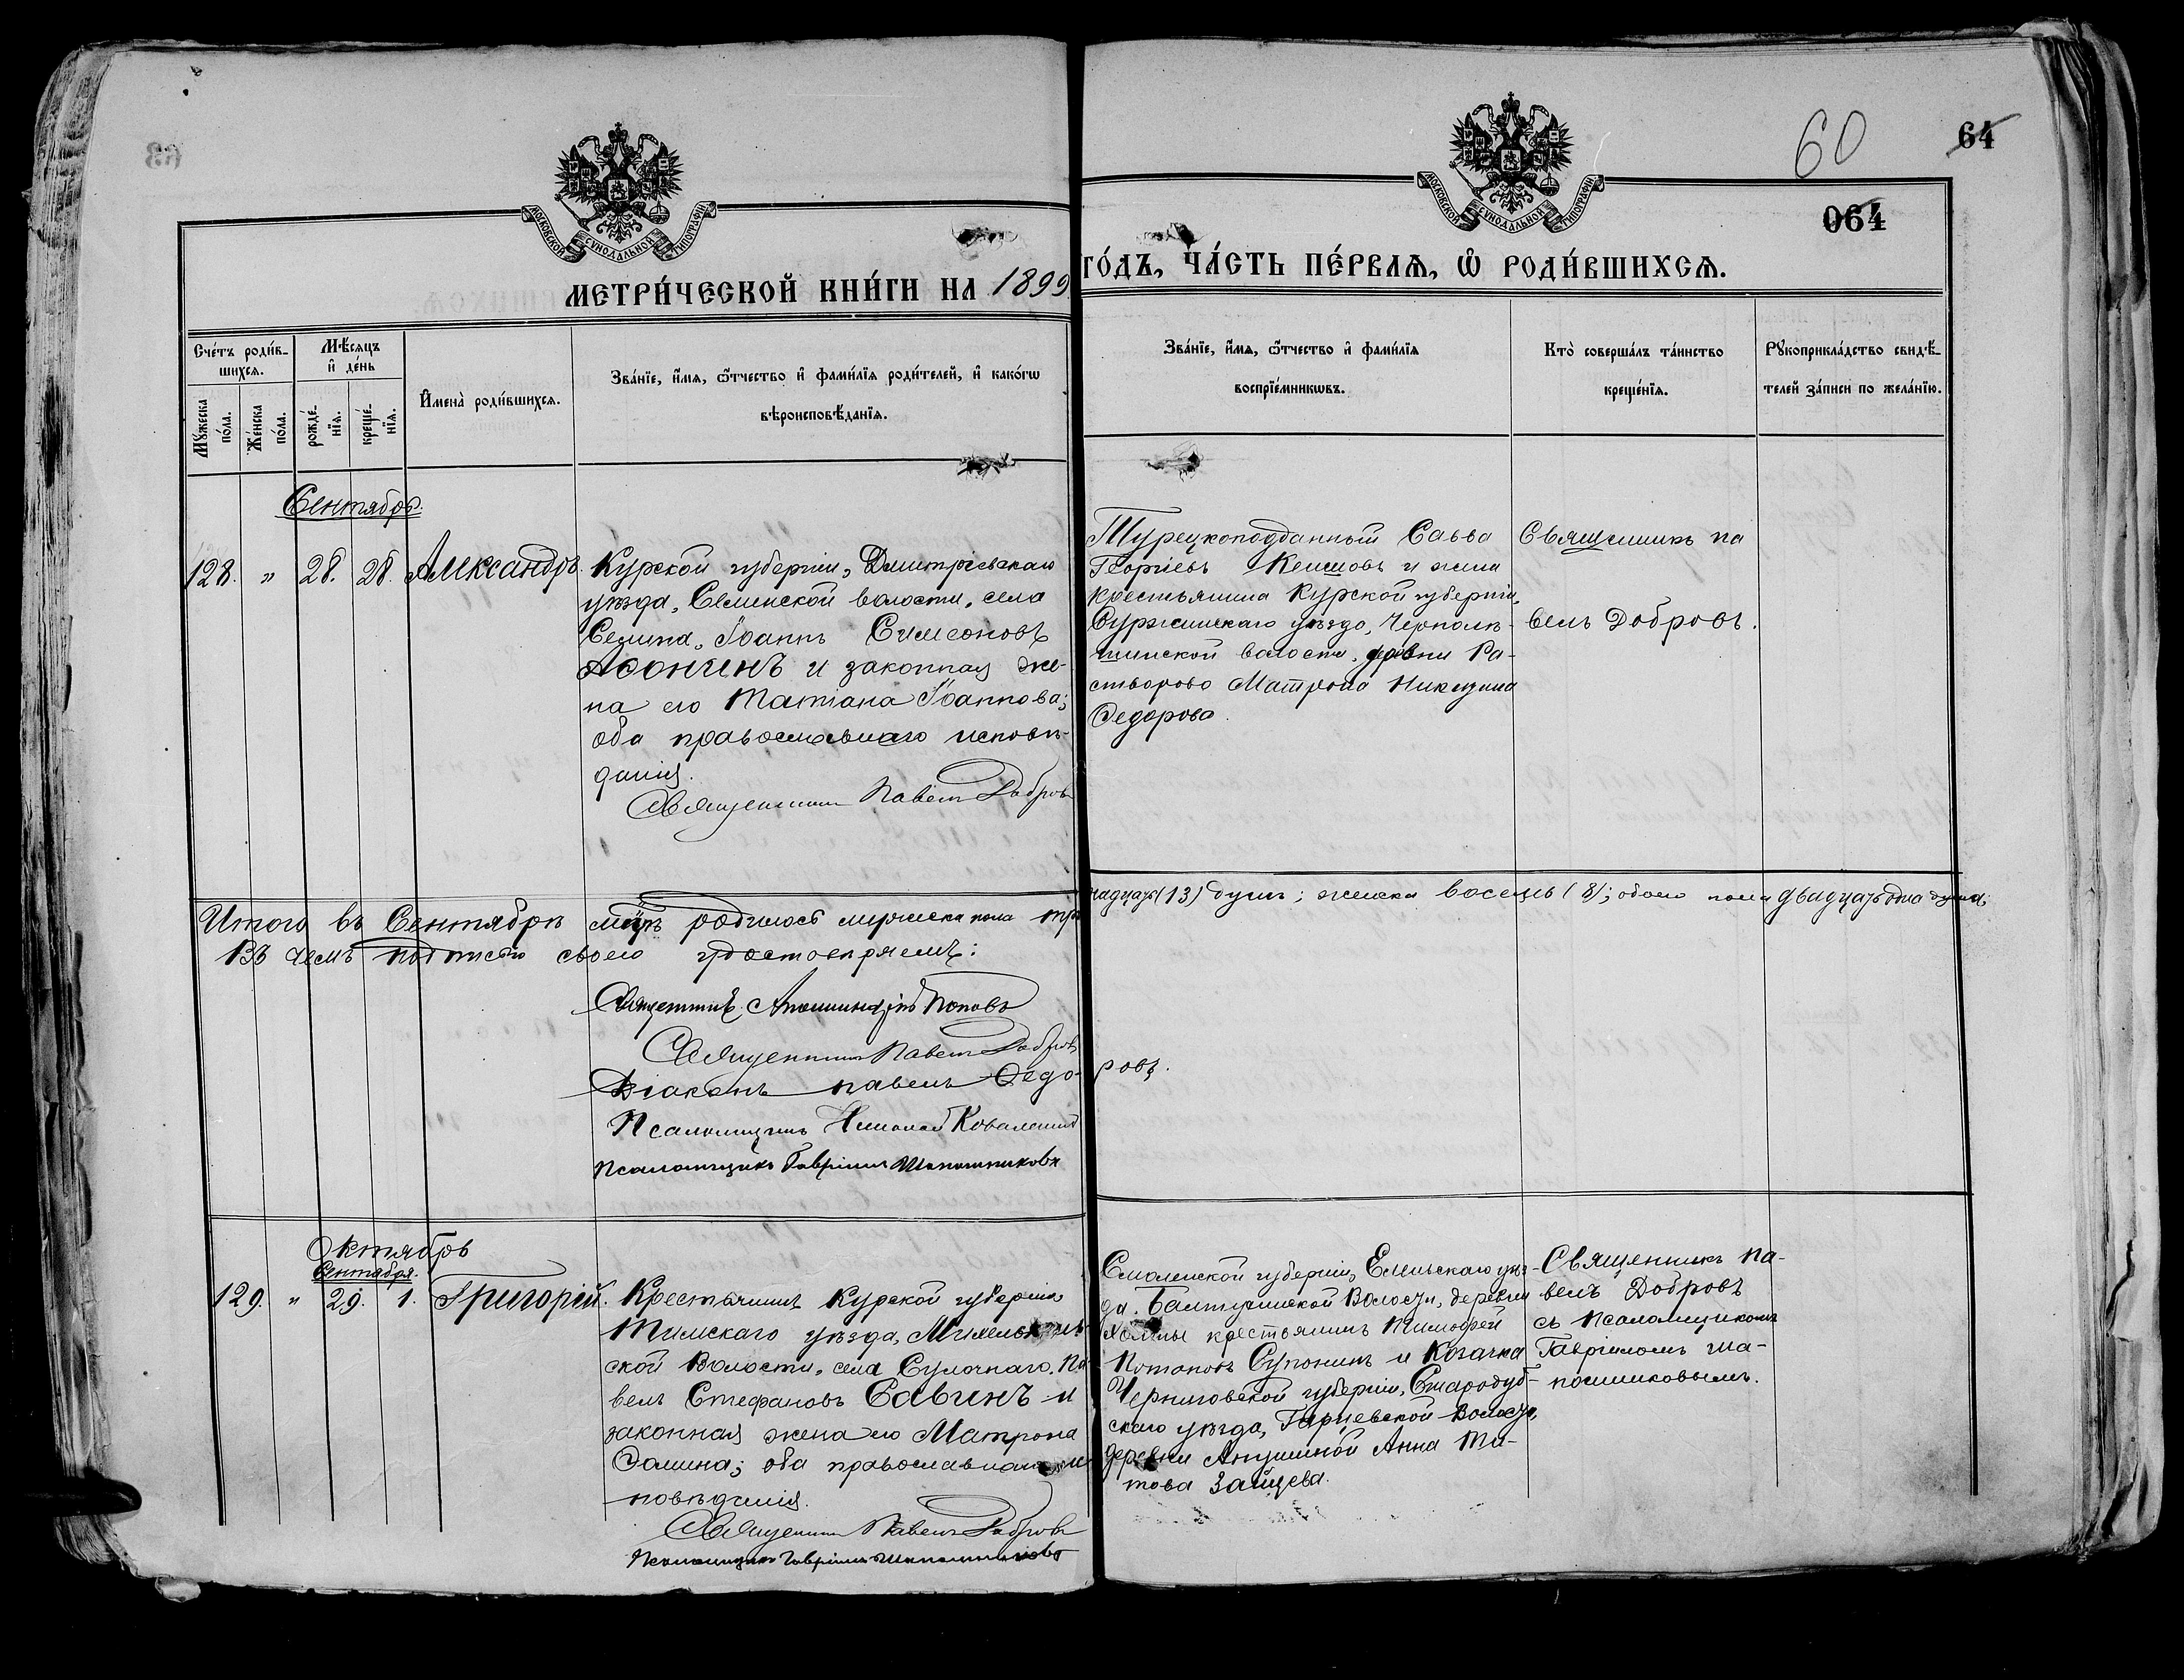 60
64
064
МОСКОВСКОЙ СѴНОДАЛЬНОЙ ТИПОГРАФІИ
МОСКОВСКОЙ СѴНОДАЛЬНОЙ ТИПОГРАФІИ
МЕТРИ́ЧЕСКОЙ КНИ́ГИ НА 1899 ГО́ДЪ, ЧА́СТЬ ПЕ́РВАѦ, Ѡ҆ РОДИ́ВШИХСѦ.
Сче́тъ роди́в-
шихсѧ.
Мꙋ́жеска
по́ла.
Же́нска
по́ла.
Мѣ́сѧцъ
и҆ де́нь
рожде́-
нїѧ.
креще́-
нїѧ.
И҆мена̀ роди́вшихсѧ.
Зва́нїе, и҆́мѧ, ѻ҆́тчество и҆ фами́лїѧ роди́телей, и҆ како́гѡ
вѣроисповѣ́данїѧ.
Зва́нїе, и҆́мѧ, ѻ҆́тчество и҆ фами́лїѧ
воспрїе́мникѡвъ.
Кто̀ соверша́лъ та́инство
креще́нїѧ.
Рꙋкоприкла́дство свидѣ́-
телей за́писи по жела́нїю.
Сентябрь.
128. " 28. 28. Александръ.
Курской губерніи, Дмитріевскаго
уѣзда, Селинской волости, села
Селина, Іоаннъ Симеоновъ
Асончинъ и законная же-
на его Татіана Іоаннова;
оба православнаго исповѣ-
данія.
Священникъ Павелъ Добровъ
Турецкоподданный Савва
Георгіевъ и жена
крестьянина Курской губерніи,
Суджанскаго уѣзда,
волости,
Матрона
Федорова.
Священникъ Па
велъ Добровъ.
Итого въ Сентябрѣ м-цѣ родилось мужеска пола три надцать (13) душъ; женска восемь (8); обоего пола двадцать одна душа;
Въ чемъ подписью своею удостовѣряемъ:
Священникъ Поповъ
Священникъ Павелъ Добровъ
Діаконъ Павелъ Ѳедо-ровъ.
Псаломщикъ Николай
Псаломщикъ Гавріилъ Шапошниковъ
Октябрь
Сентября.
129. " 29. 1. Григорій.
Крестьянинъ Курской губерніи
Тимскаго уѣзда,
ской Волости, села Сулочнаго, Па
велъ Стефановъ Савинъ и
законная жена его Матрона
Ѳомина; оба православнаго ис
повѣданія.
Священникъ Павелъ Добровъ
Псаломщикъ Гавріилъ Шапошниковъ
Смоленской губерніи, Ельнскаго уѣз-
да, Балтутинской Волости, деревни
крестьянинъ Тимофей
Потаповъ Супонинъ и Козачка
Черниговской губерніи, Стародуб-
скаго уѣзда, Гарцевской Волости,
деревни Анна Ти-
това Зайцева.
Священникъ Па-
велъ Добровъ
съ Псаломщикомъ
Гавріиломъ Ша-
пошниковымъ.